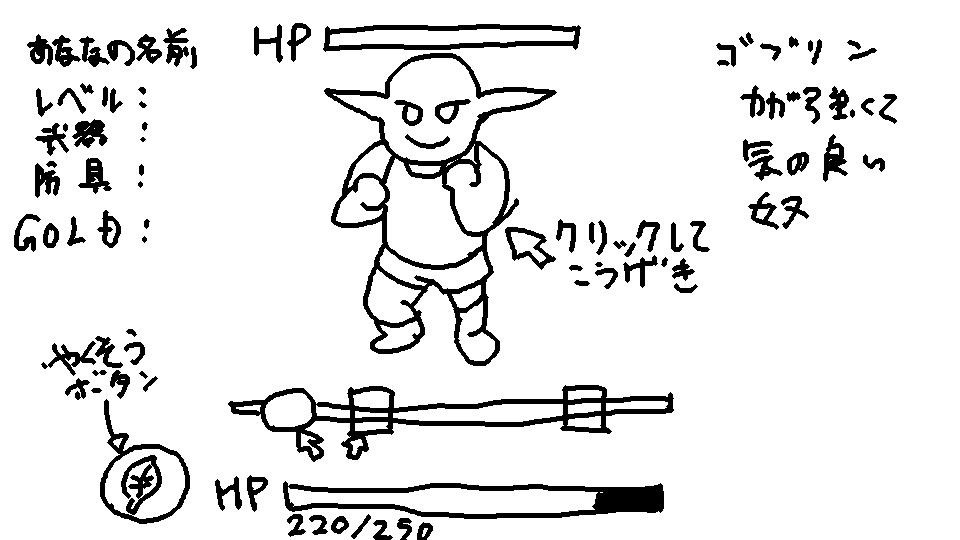 あなたの名前
レベル：
武器：
防具：
GOLD：
HP
ゴブリン
力が強くて
気の良い
奴
クリックして
こうげき
やくそう
ボタン
HP
220/250